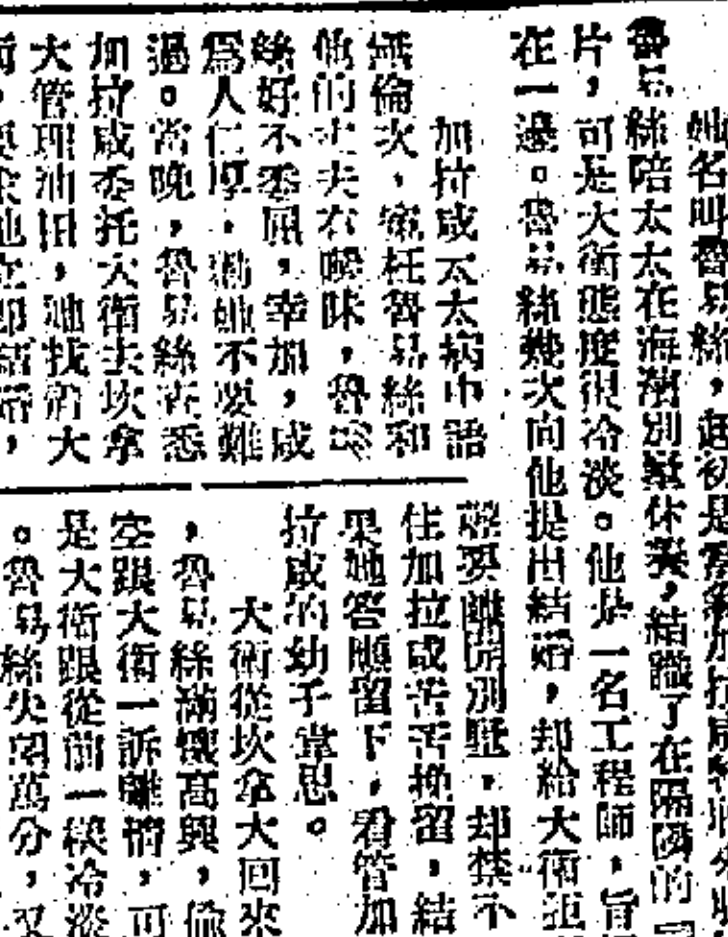 她名叫魯易絲，起初是
魯易絲陪太太在海濱別墅休養，結識了在隔鄰的
片，可是大衛態度很冷淡。他是一名工程師，
在一邊。魯易絲幾次向他提出結婚，却給大衛拒
加拉咸太太病中語
無倫次，寃枉魯易絲和
他的丈夫有曖昧，魯易
絲好不委屈，幸加，咸
爲人仁厚，勸她不要難
過。當晚，魯易絲查悉
加拉咸委托大衛去坎拿
大管理油田，她找着大
衛，要求他立卽結婚，
聲要離開別墅，却禁不
住加拉咸苦苦挽留，結
果她答應留下，看管加
拉咸的幼子韋思。
大衛從坎拿大回來
，魯易絲滿懷高興，偷
空跟大衛一訴離情，可
是大衛跟從前一樣冷淡
。魯易絲失望萬分，又